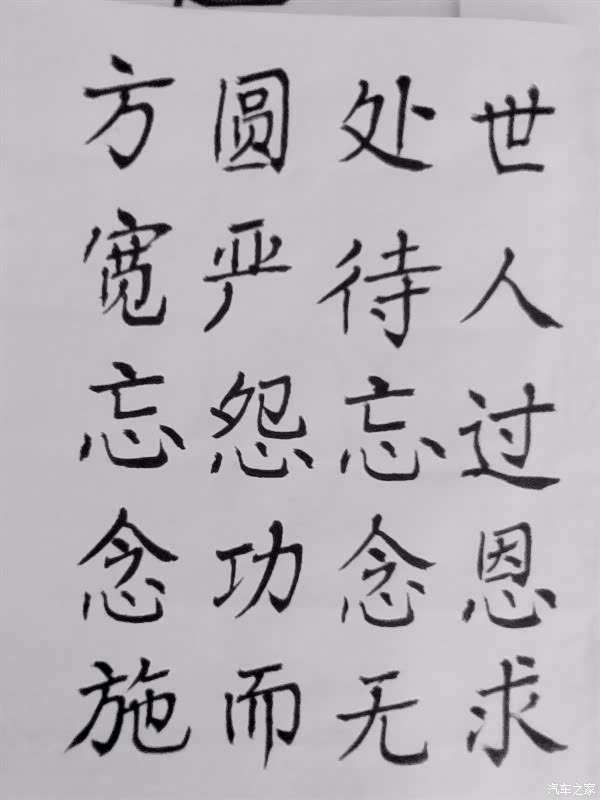 方圆处世
宽严待人
忘怨忘过
念功念恩
施而无求
汽车之家